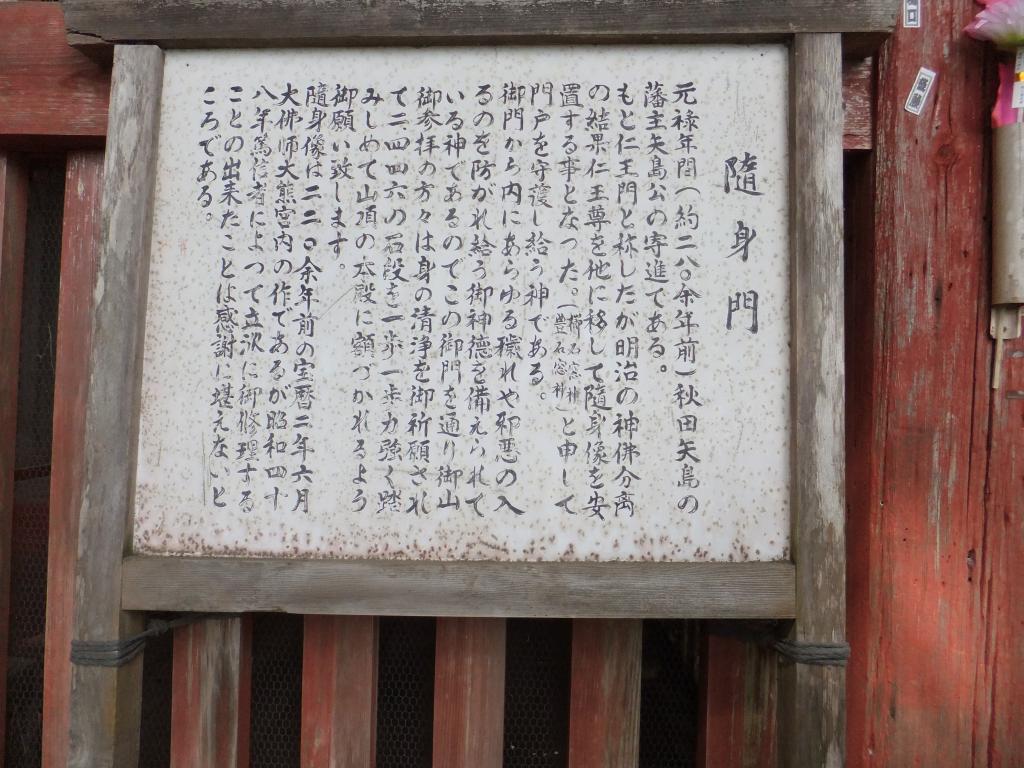 隨身門
元禄年間(約二八〇余年前)秋田矢島の
藩主矢島公の寄進である。
もと仁王門と称したが明治の神佛分离
の結果仁王尊を他に移して隨身像を安
置する事となった。(櫛石窓神 豊石窓神)と申して
門戸を守護し給う神である。
御門から内にあらゆる穢れや邪悪の入
るのを防がれ給う御神德を備えられて
いる神であるのでこの御門を通り御山
御参拝の方々は身の清浄を御祈願され
て二四四六の石段を一歩一歩力強く踏
みしめて山頂の本殿に額づかれるよう
御願い致します。
隨身像は二二〇余年前の宝暦二年六月
大佛師大熊宮内の作であるが昭和四十
八年篤信者によって立派に御修理する
ことの出来たことは感謝に堪えないと
ころである。